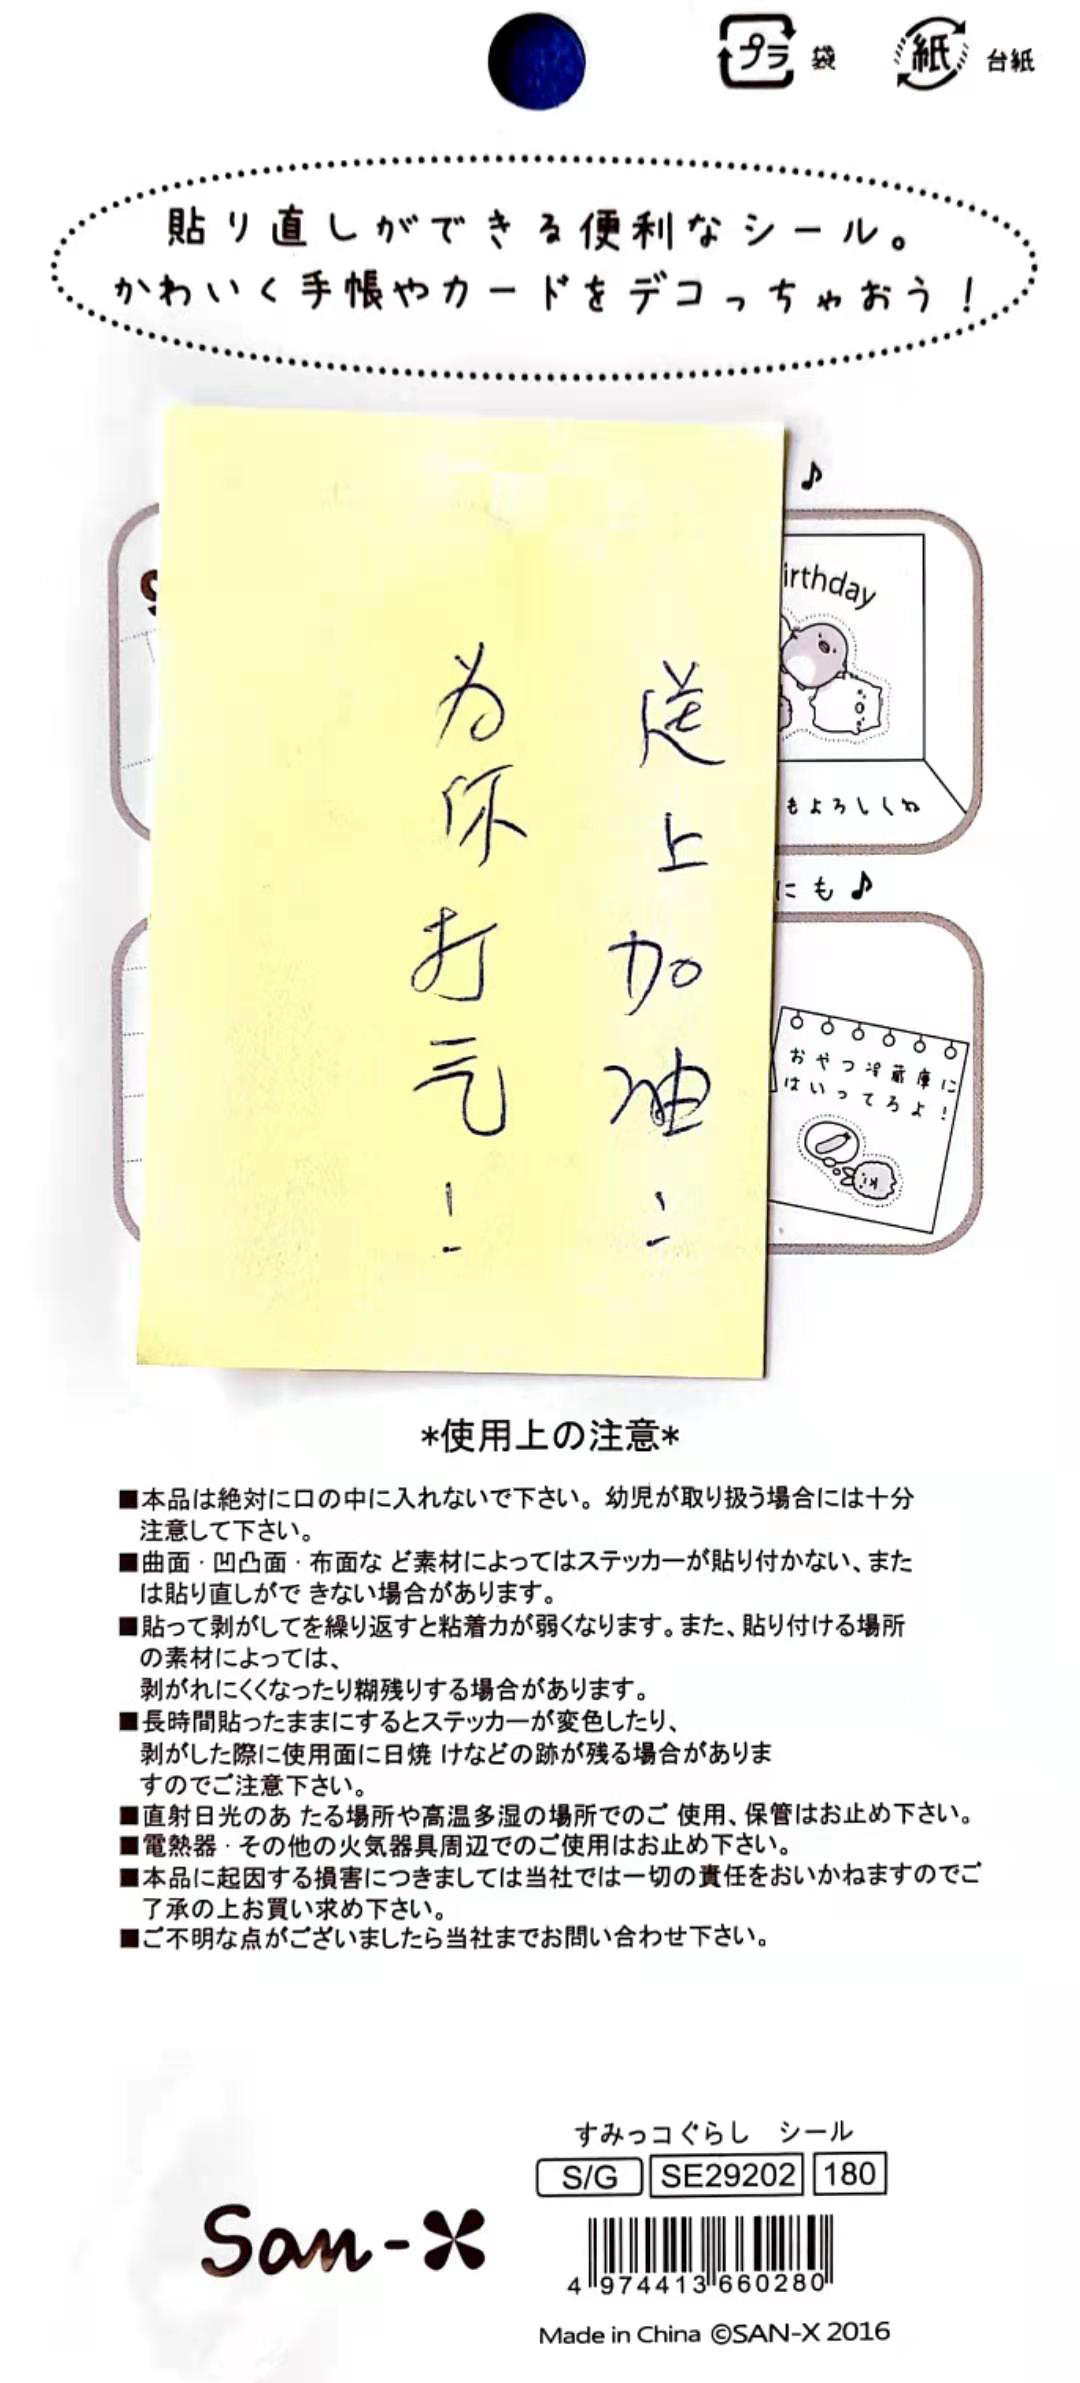 プラ 袋 紙 台紙
貼り直しができる便利なシール。
かわいく手帳やカードをデコっちゃおう！
♪
irthday
もよろしくね
にも♪
おやつ冷蔵庫に
はいってろよ！
送上加油！
为你打气！
*使用上の注意*
■本品は絶対に口の中に入れないで下さい。幼児が取り扱う場合には十分
注意して下さい。
■曲面·凹凸面·布面な ど素材によってはステッカーが貼り付かない、また
は貼り直しがで きない場合があります。
■貼って剥がしてを繰り返すと粘着力が弱くなります。また、貼り付ける場所
の素材によっては、
剥がれにくくなったり糊残りする場合があります。
■長時間貼ったままにするとステッカーが変色したり、
剥がした際に使用面に日焼 けなどの跡が残る場合がありま
すのでご注意下さい。
■直射日光のあ たる場所や高温多湿の場所でのご 使用、保管はお止め下さい。
■電熱器·その他の火気器具周辺でのご使用はお止め下さい。
■本品に起因する損害につきましては当社では一切の責任をおいかねますのでご
了承の上お買い求め下さい。
■ご不明な点がございましたら当社までお問い合わせ下さい。
すみっコぐらし シール
S/G SE29202 180
San-X
4 974413 660280
Made in China ©SAN-X 2016